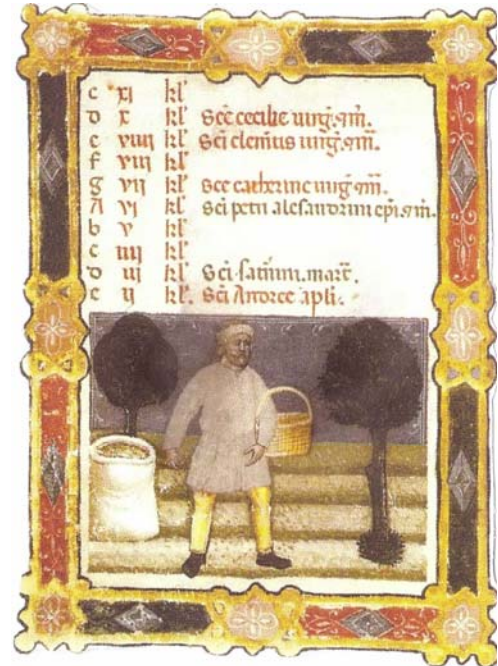 c xj kl'
D x kl' Sce cecilie uirg. 7 m.
e viiij kl' Sci clemtis uirg. 7 m.
f viij kl'
g vij kl' Sce catherine uirg. 7 m.
A vj kl' Sci petri alesandrini epi. 7 m.
b v kl'
c iiij kl'
D iij kl' Sci saturnini. mart.
e ij kl'. Sci Andree apli.